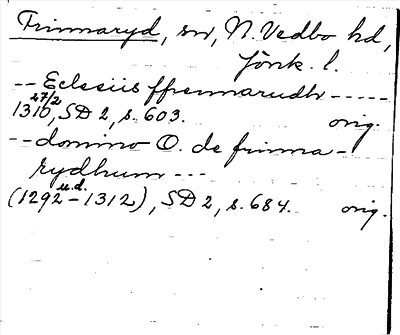 Frinnaryd, sn, N. Vedbo hd,
Jönk. l.
-- Eclesiis ffrennarudh -----
27/2
1310, SD 2, s. 603. orig.
-- domino O. de frinna-
rydhum ---
u.d.
(1292-1312), SD 2, s. 684. orig.